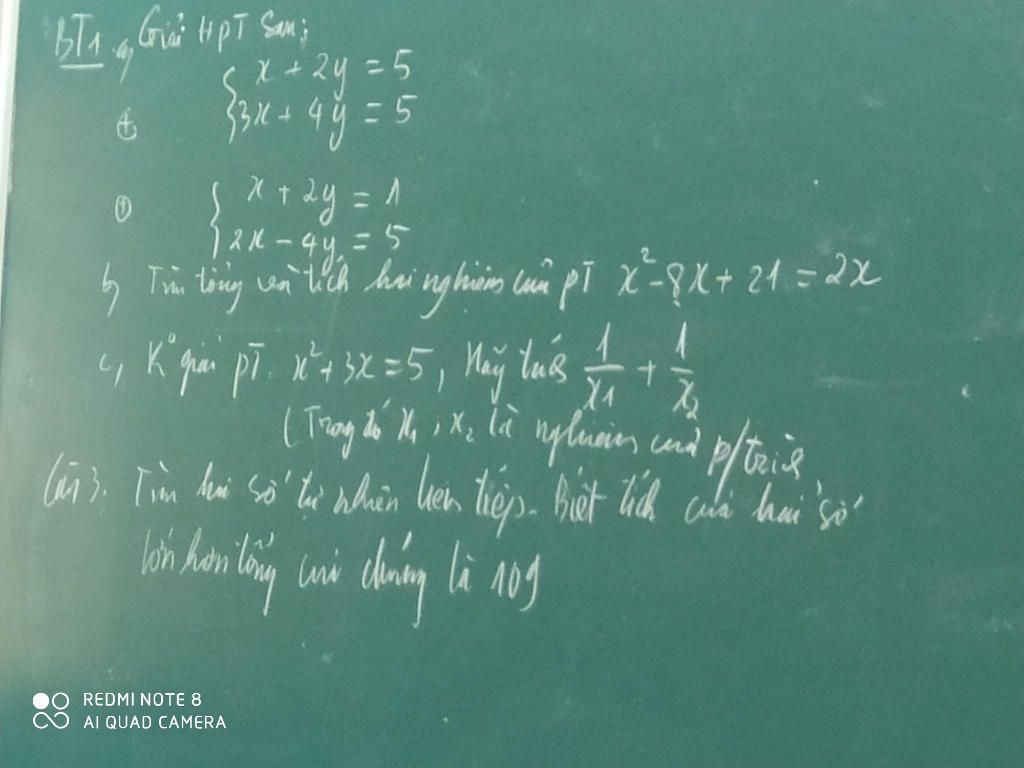 BT1 a, Giải HPT Sau:
{ x + 2y = 5
⊕ { 3x + 4y = 5
⊕ { x + 2y = 1
{ 2x - 4y = 5
b, Tìm tổng và tích hai nghiệm của pT x² - 8x + 21 = 2x
c, K° giải pT. x² + 3x = 5, Hãy tính 1/x1 + 1/x2
(Trong đó x₁, x₂ là nghiệm của p/trình
Câu 3. Tìm hai số tự nhiên liên tiếp. Biết tích của hai số
lớn hơn tổng của chúng là 109
REDMI NOTE 8
AI QUAD CAMERA